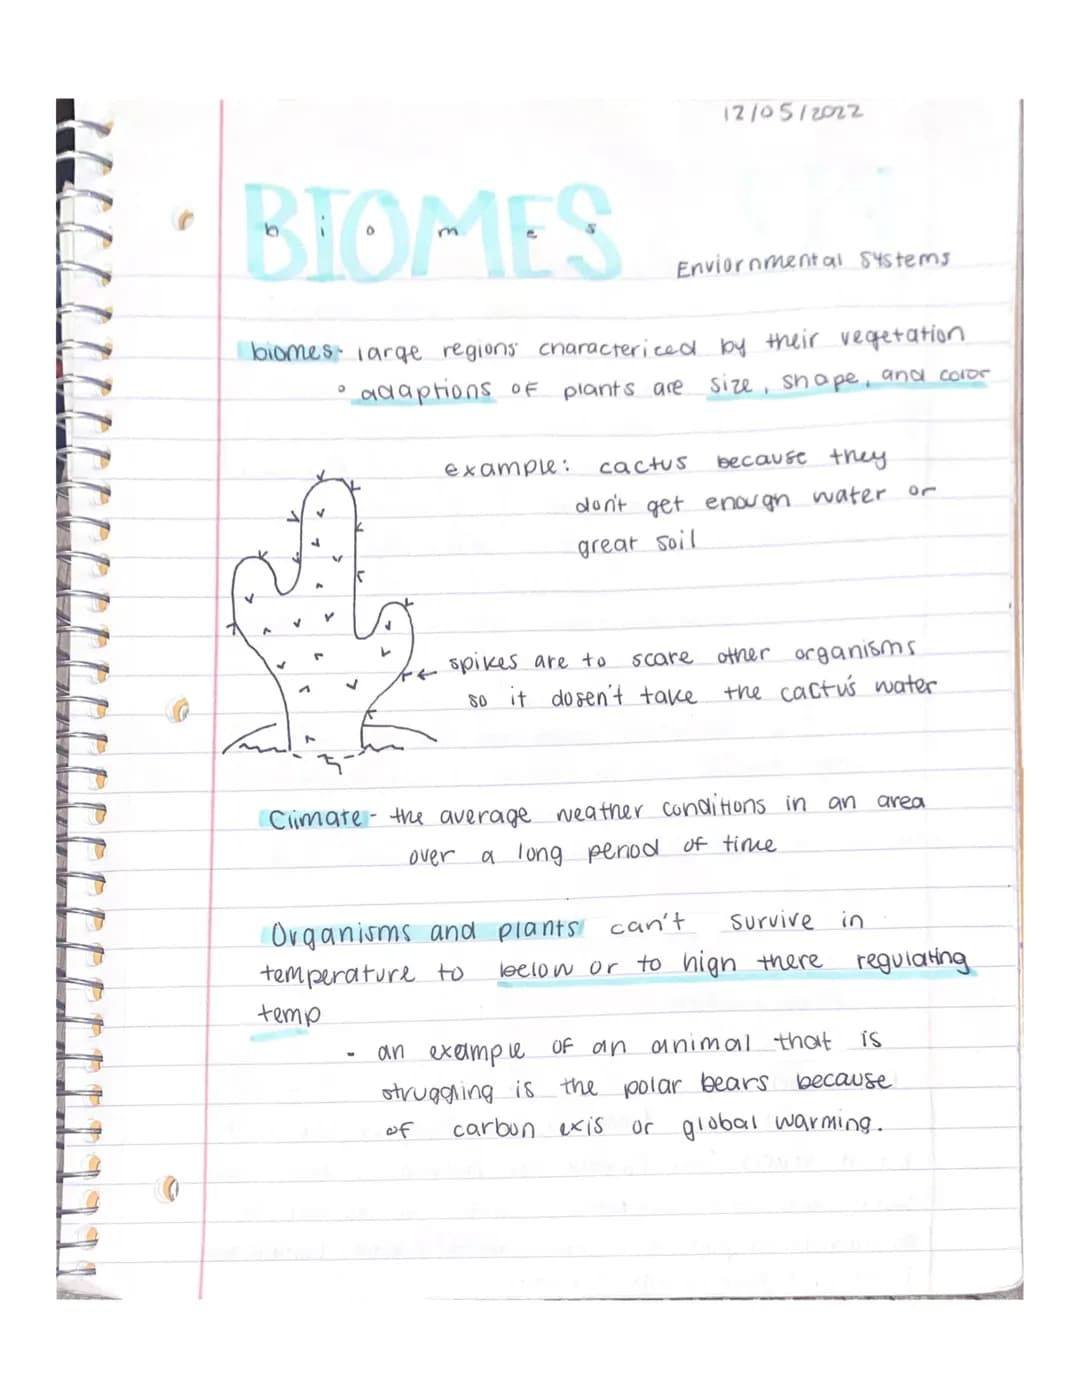 12/05/2022
BIOMES
b i o m e s
Enviornmental Systems
biomes- large regions charactericed by their vegetation
• adaptions of plants are size, shape, and color
example: cactus because they
don't get enough water or
great soil
spikes are to scare other organisms
so it dosen't take the cactus water
Climate - the average weather conditions in an area
over a long period of time
Organisms and plants can't survive in
temperature to below or to high there regulating
temp
- an example of an animal that is
struggling is the polar bears because
of carbon exis or global warming.